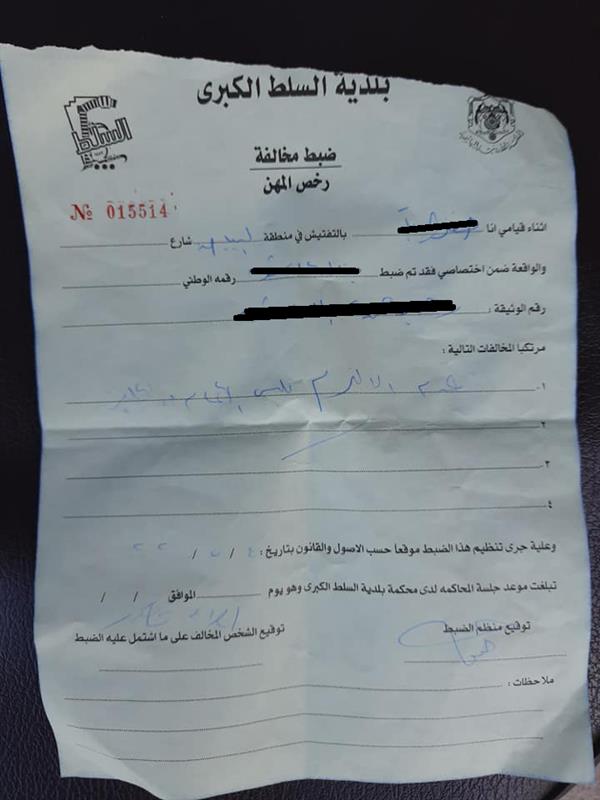 بلدية السلط الكبرى
السلط
ضبط مخالفة
رخص المهن
№ 015514
اثناء قيامي انا بالتفتيش في منطقة شارع
والواقعة ضمن اختصاصي فقد تم ضبط رقمه الوطني
رقم الوثيقة :
مرتكبا المخالفات التالية :
١- عدم الالتزام بلبس الكمام و
٢
٣
٤
وعلية جرى تنظيم هذا الضبط موقعاً حسب الاصول والقانون بتاريخ : ٤ / ٥ / ٢٢
تبلغت موعد جلسة المحاكمه لدى محكمة بلدية السلط الكبرى وهو يوم الموافق / /
توقيع منظم الضبط توقيع الشخص المخالف على ما اشتمل عليه الضبط
ملاحظات :